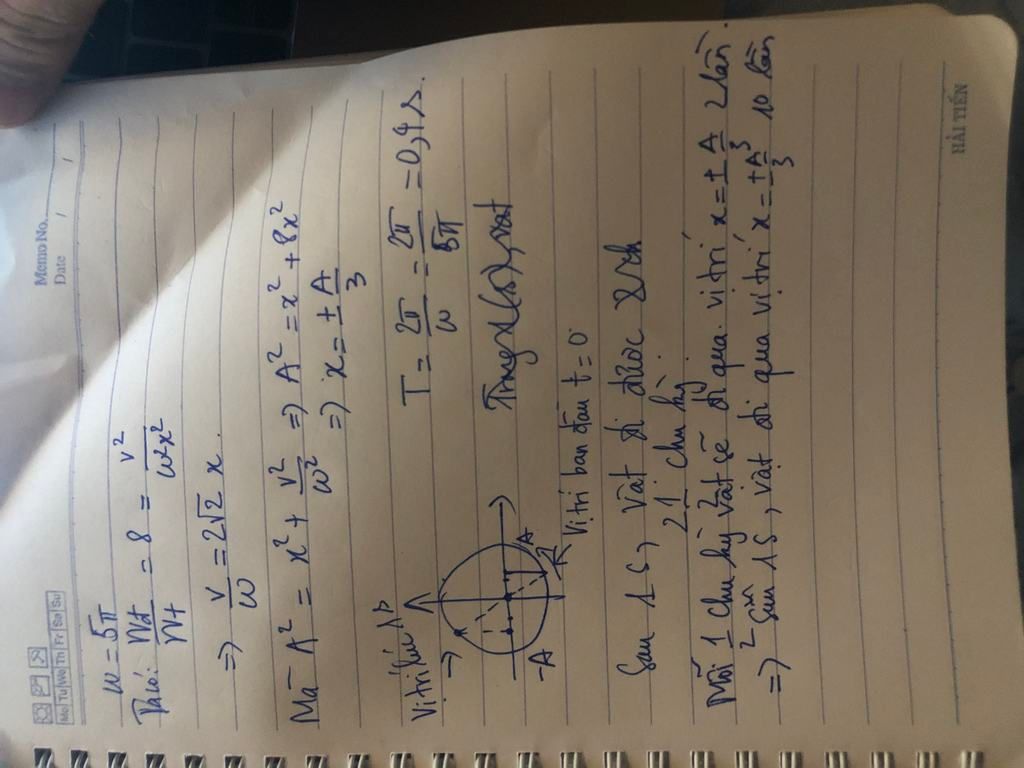 Memo No.
Date / /
Mo Tu We Th Fr Sa Su
ω = 5π
Ta có: Wđ/Wt = 8 = v²/ω²x²
=> v/ω = 2√2 x.
Mà A² = x² + v²/ω² => A² = x² + 8x²
=> x = ± A/3
T = 2π/ω = 2π/5π = 0,4 s.
Vị trí lúc 1s
-A A
Vị trí ban đầu t = 0
Sau 1s, vật đi được
2 1/2 chu kỳ
Mỗi 1/2 chu kỳ vật sẽ đi qua vị trí x = ± A/3 2 lần.
=> Sau 1s, vật đi qua vị trí x = ±A/3 10 lần
HẢI TIẾN